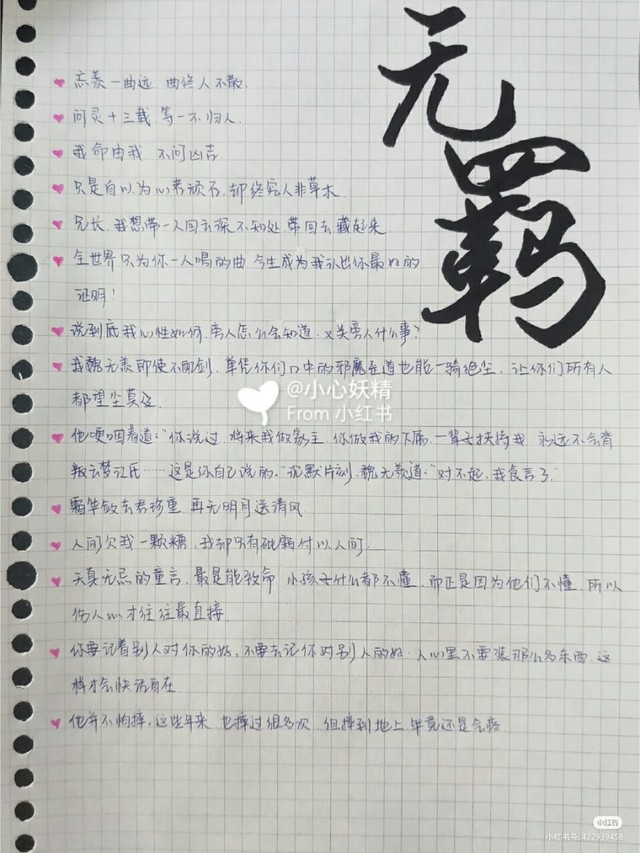 无羁
忘羡一曲远 曲终人不散.
问灵十三载 等一不归人.
我命由我 不问凶吉
只是自以为心若顽石.却终究人非草木.
兄长.我想带一人回云深不知处 带回去 藏起来
全世界只为你一人唱的曲 今生成为我认出你最好的
证明!
说到底我心性如何.旁人怎么会知道.又关旁人什么事?
我魏无羡即使不用剑.单凭你们口中的邪魔歪道也能一骑绝尘.让你们所有人
都望尘莫及.
他哽咽着道:“你说过 将来我做家主 你做我的下属.一辈子扶持我 永远不会背
叛云梦江氏……这是你自己说的.”沉默片刻.魏无羡道:“对不起.我食言了.”
霜华敬去君珍重 再无明月送清风
人间欠我一颗糖.我却只有砒霜付以人间.
天真无忌的童言.最是能致命 小孩子什么都不懂.而正是因为他们不懂.所以
伤人心才往往最直接.
你要记着别人对你的好.不要去记你对别人的好.人心里不要装那么多东西.这
样才会快活自在
他并不怕摔.这些年来.也摔过很多次.但摔到地上.毕竟还是会疼
@小心妖精
From 小红书
小红书
小红书号:422939458